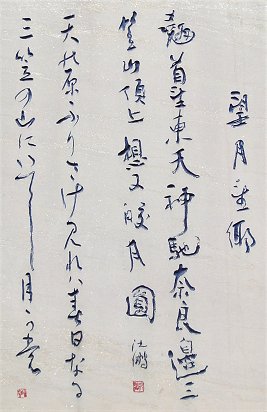 望月望鄉
翹首望東天神馳奈良邊三
笠山頂上想又皎月圓
天の原ふりさけ見れハ春日なる
三笠の山にいてし月可裳